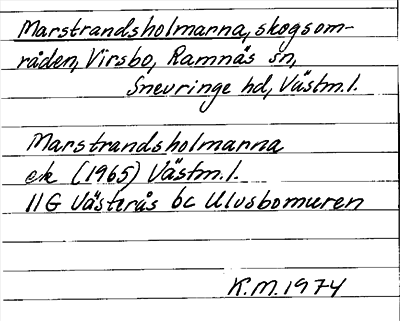 Marstrandsholmarna, skogsom-
råden, Virsbo, Ramnäs sn,
Snevringe hd, Västm.l.
Marstrandsholmarna
ek (1965) Västm.l.
11G Västerås 6c Ulvsbomuren
K.M. 1974